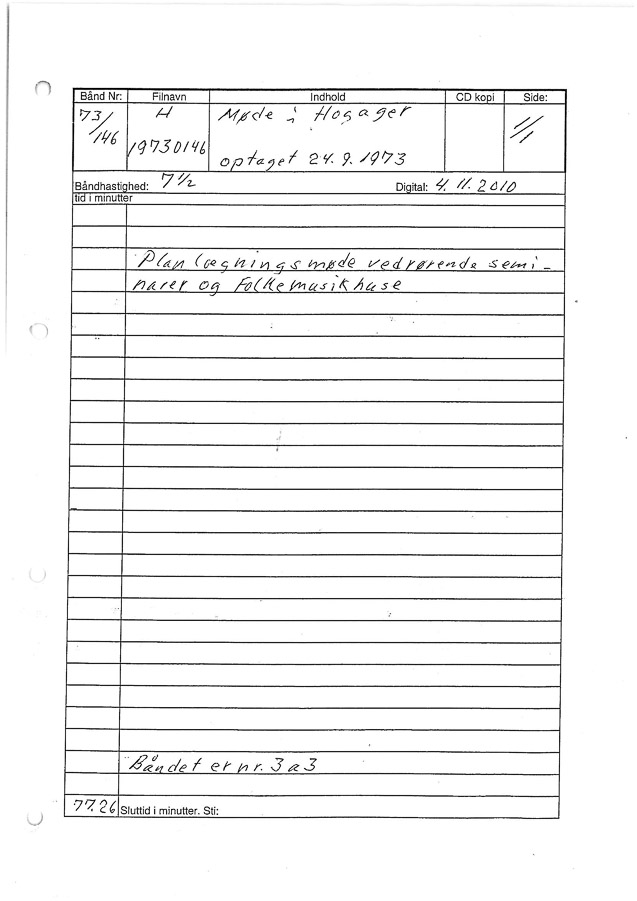 Bånd Nr: Filnavn Indhold CD kopi Side:
73/146 H 19730146 Møde i Hogager 1/1
optaget 24.9.1973
Båndhastighed: 7 1/2 Digital: 4.11.2010
tid i minutter
Planlægningsmøde vedrørende semi-
narer og Folkemusikhuse
Båndet er nr. 3 a 3
77.26 Sluttid i minutter. Sti: